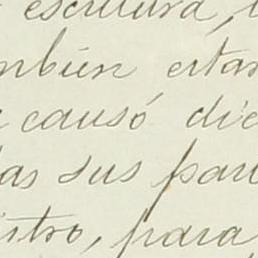 escritura,
mbien estan
causó dic
das sus par
istro, para